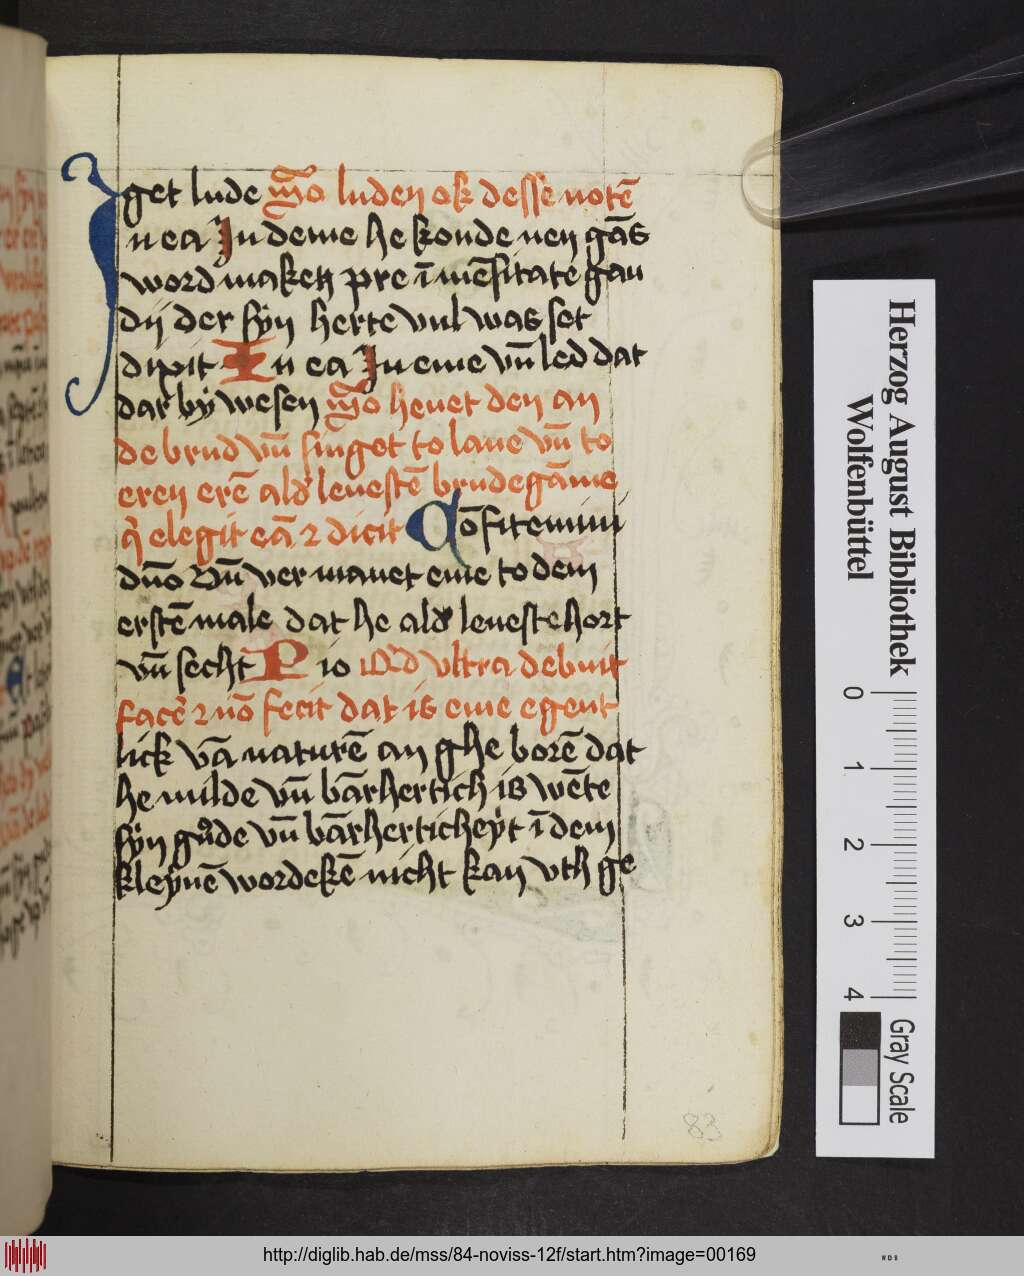 Jget lude Wo luden ok desse notē
n ea Jn deme he konde neyn gās
word maken pre īmēsitate gau
dij der syn herte vul was set
dixit In ea Jn eme vn̄ led dat
dar by wesen Wo heuet den an
de brud vn̄ singet to laue vn̄ to
eren erē ald' leuestē brudegāme
q̄ elegit eā ꝛ dicit Cōfitemini
dn̄o Vn̄ ver manet eme to dem
erstē male dat he ald' leueste hort
vn̄ secht P io Qd vltra debuit
facē ꝛ nō fecit dat is eme egent
lick vā naturē an ghe borē dat
he milde vn̄ bārhertich is wēte
syn gude vn̄ bārherticheyt ī dem
kleynē wordekē nicht kan vth ge
83
Herzog August Bibliothek
Wolfenbüttel
0 1 2 3 4
Gray Scale
http://diglib.hab.de/mss/84-noviss-12f/start.htm?image=00169